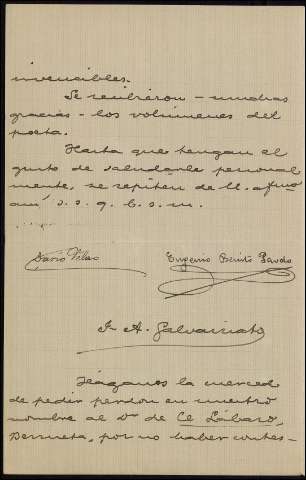 invencibles.
Se recibieron - muchas
gracias - los volúmenes del
poeta.
Hasta que tengan el
gusto de saludarle personal
mente, se repiten de U. afmos
s. s. q. b. s. m.
Darío Villar Eugenio Benito Pardo
J. A. Galvarriato
Háganos la merced
de pedir perdon en nuestro
nombre al Dr de El Lábaro,
Berrueta, por no haber contes-